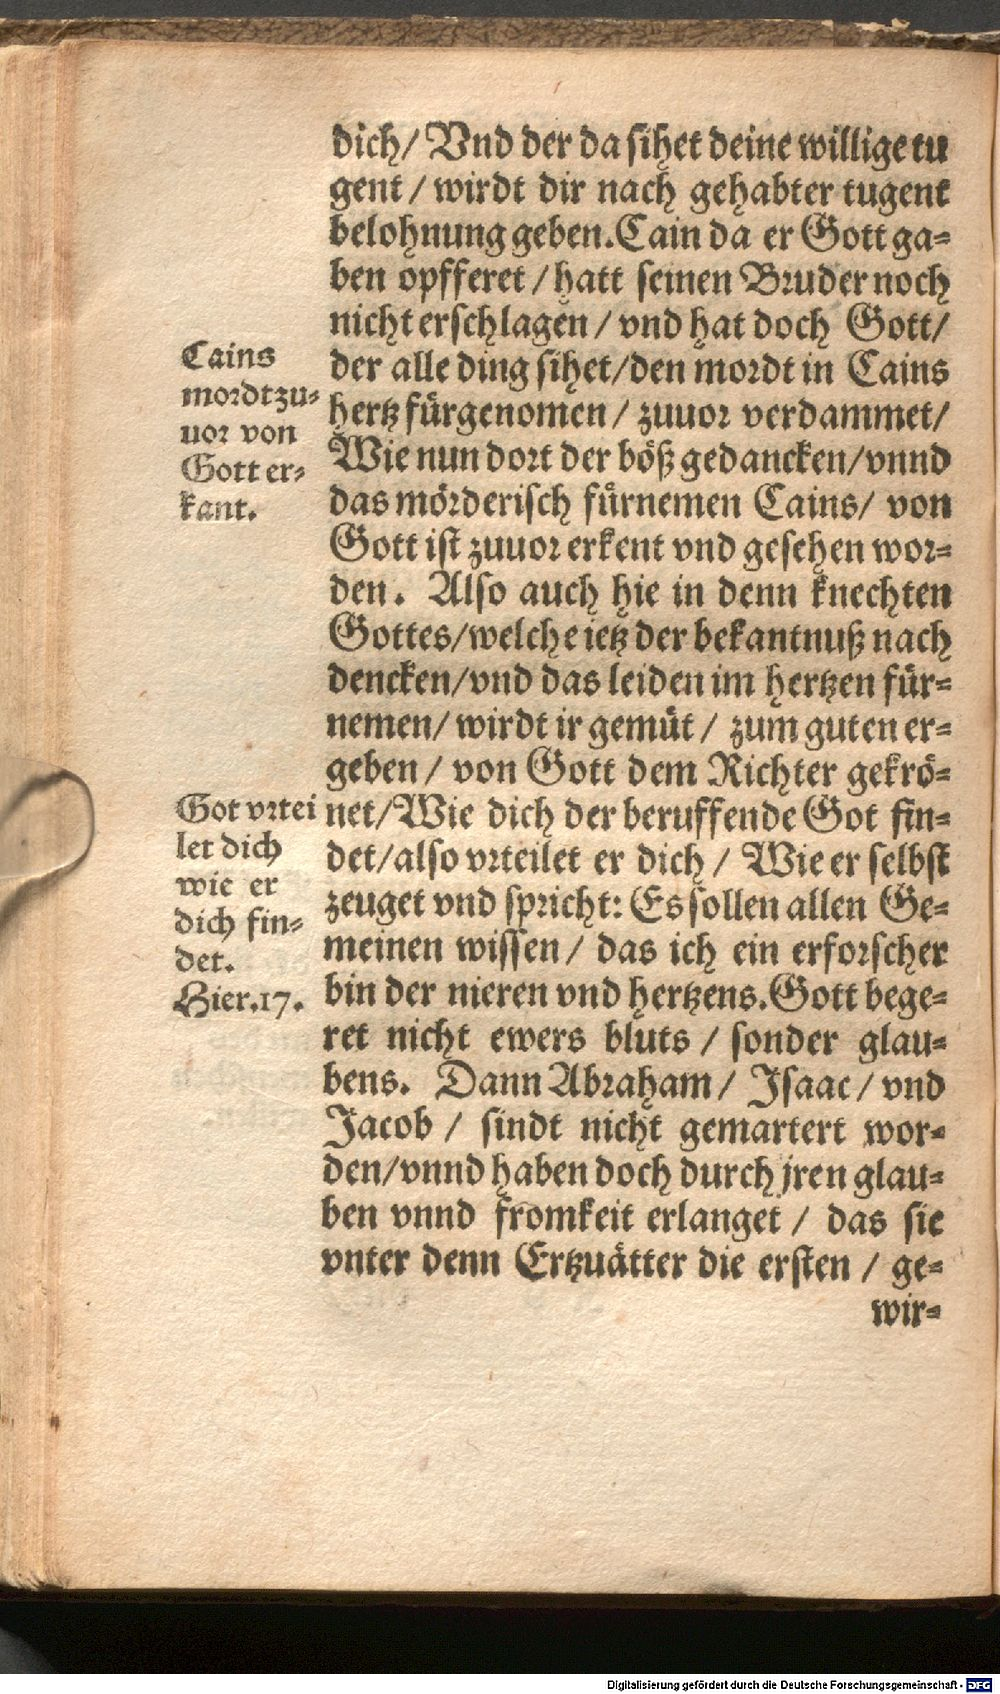 dich/ Vnd der da sihet deine willige tu
gent / wirdt dir nach gehabter tugent
belohnung geben. Cain da er Gott ga=
ben opfferet / hatt seinen Bruder noch
nicht erschlagen / vnd hat doch Gott/
der alle ding sihet/den mordt in Cains
hertz fürgenomen / zuuor verdammet/
Wie nun dort der böß gedancken/vnnd
das mörderisch fürnemen Cains/ von
Gott ist zuuor erkent vnd gesehen wor=
den. Also auch hie in denn knechten
Gottes/welche ietz der bekantnuß nach
dencken/vnd das leiden im hertzen für=
nemen/ wirdt ir gemüt / zum guten er=
geben / von Gott dem Richter gekrö=
net/Wie dich der beruffende Got fin=
det/also vrteilet er dich / Wie er selbst
zeuget vnd spricht: Es sollen allen Ge=
meinen wissen / das ich ein erforscher
bin der nieren vnd hertzens. Gott bege=
ret nicht ewers bluts / sonder glau=
bens. Dann Abraham/ Isaac/ vnd
Jacob / sindt nicht gemartert wor=
den/vnnd haben doch durch jren glau=
ben vnnd fromkeit erlanget / das sie
vnter denn Ertzuätter die ersten / ge=
wir=
Cains
mordt zu=
uor von
Gott er=
kant.
Got vrtei
let dich
wie er
dich fin=
det.
Hier.17.
Digitalisierung gefördert durch die Deutsche Forschungsgemeinschaft - DFG